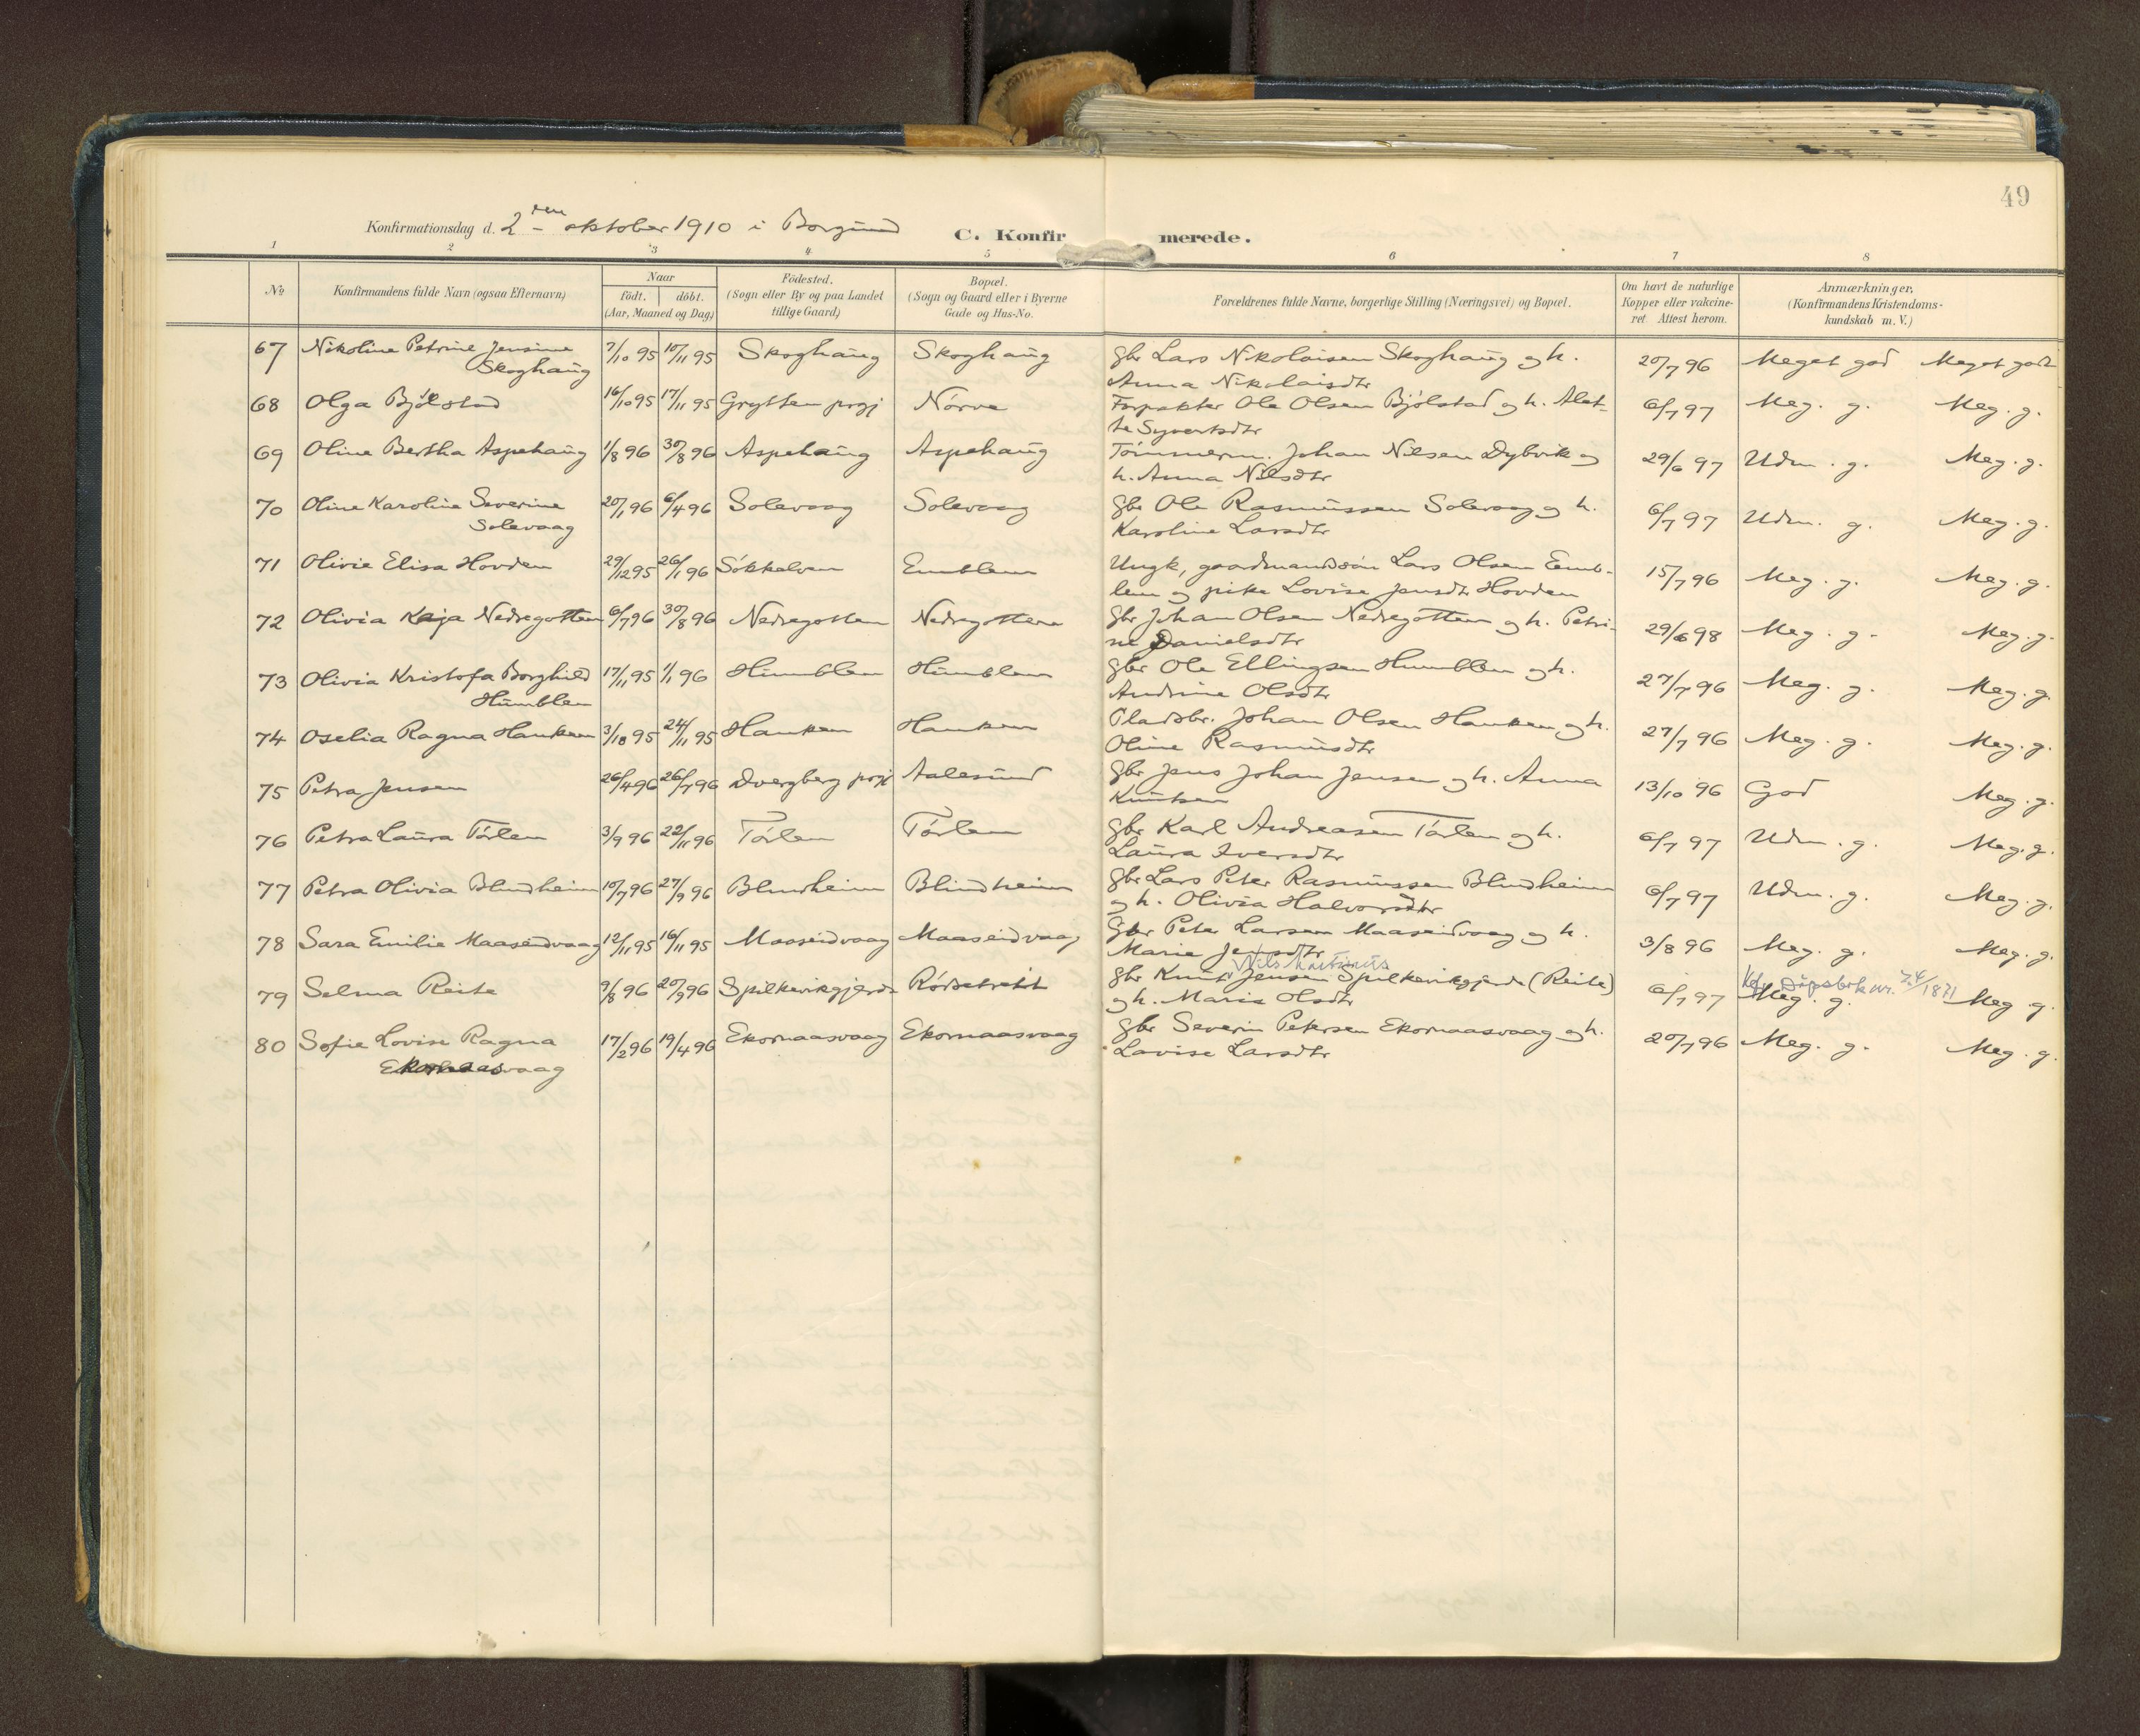 49
Konfirmationsdag d. 2den oktober 1910 i Borgund
C. Konfirmerede.
1 2 3 4 5 6 7 8
No
Konfirmandens fulde Navn (ogsaa Efternavn)
Naar
födt. döbt.
(Aar, Maaned og Dag)
Födested.
(Sogn eller By og paa Landet
tillige Gaard)
Bopæl.
(Sogn og Gaard eller i Byerne
Gade og Hus-No.
Forældrenes fulde Navne, borgerlige Stilling (Næringsvei) og Bopæl.
Om havt de naturlige
Kopper eller vakcine-
ret. Attest herom.
Anmærkninger.
(Konfirmandens Kristendoms-
kundskab m. V.)
67 Nikoline Petrine Jensine 7/10 95 10/11 95 Skoghaug Skoghaug Gbr Lars Nikolaisen Skoghaug og h. 20/7 96 Meget god Meget godt
Skoghaug Anna Nikolaisdtr
68 Olga Bjölstad 16/10 95 17/11 95 Grytten prgj Nörve Forpakter Ole Olsen Bjölstad og h. Alet- 6/7 97 Meg. g. Meg. g.
te Syvertsdtr
69 Oline Bertha Aspehaug 1/8 96 30/8 96 Aspehaug Aspehaug Tömmerm. Johan Nilsen Dybvik og 29/6 97 Udm. g. Meg. g.
h. Anna Nilsdtr
70 Oline Karoline Severine 20/1 96 6/4 96 Solevaag Solevaag Gbr Ole Rasmussen Solevaag og h. 6/7 97 Udm. g. Meg. g.
Solevaag Karoline Larsdtr
71 Olivie Elisa Hovden 29/12 95 26/1 96 Sökkelven Emblem Ungk, gaardmandssön Lars Olsen Emb- 15/7 96 Meg. g. Meg. g.
lem og pike Lovise Jensdtr Hovden
72 Olivia Kaja Nedregotten 6/7 96 30/8 96 Nedregotten Nedregotten Gbr Johan Olsen Nedregotten og h. Petri- 29/6 98 Meg. g. Meg. g.
ne Danielsdtr
73 Olivia Kristofa Borghild 17/11 95 1/1 96 Humblen Humblen Gbr Ole Ellingsen Humblen og h. 27/7 96 Meg. g. Meg. g.
Humblen Andrine Olsdtr
74 Oselia Ragna Hanken 3/10 95 24/11 95 Hanken Hanken Pladsbr. Johan Olsen Hanken og h. 27/7 96 Meg. g. Meg. g.
Oline Rasmusdtr
75 Petra Jensen 26/4 96 26/7 96 Dvergberg prgj Aalesund Gbr Jens Johan Jensen og h. Anna 13/10 96 God Meg. g.
Knutsen
76 Petra Laura Törlen 3/9 96 22/11 96 Törlen Törlen Gbr Karl Andreasen Törlen og h. 6/7 97 Udm. g. Meg. g.
Laura Iversdtr
77 Petra Olivia Blindheim 10/7 96 27/9 96 Blindheim Blindheim Gbr Lars Peter Rasmussen Blindheim 6/7 97 Udm. g. Meg. g.
og h. Olivia Halvorsdtr
78 Sara Emilie Maaseidvaag 12/11 95 16/11 95 Maaseidvaag Maaseidvaag Gbr Peter Larsen Maaseidvaag og h. 3/8 96 Meg. g. Meg. g.
Marie Jensdtr
79 Selma Reite 9/8 96 20/9 96 Spilkevikgjerde Rödsetreit Gbr Knut Jensen Spilkevikgjerde (Reite) 6/7 97 Meg. g. Meg. g.
og h. Marie Olsdtr
80 Sofie Lovise Ragna 17/2 96 19/4 96 Ekornaasvaag Ekornaasvaag Gbr Severin Petersen Ekornaasvaag og h. 20/7 96 Meg. g. Meg. g.
Ekornaasvaag Lovise Larsdtr